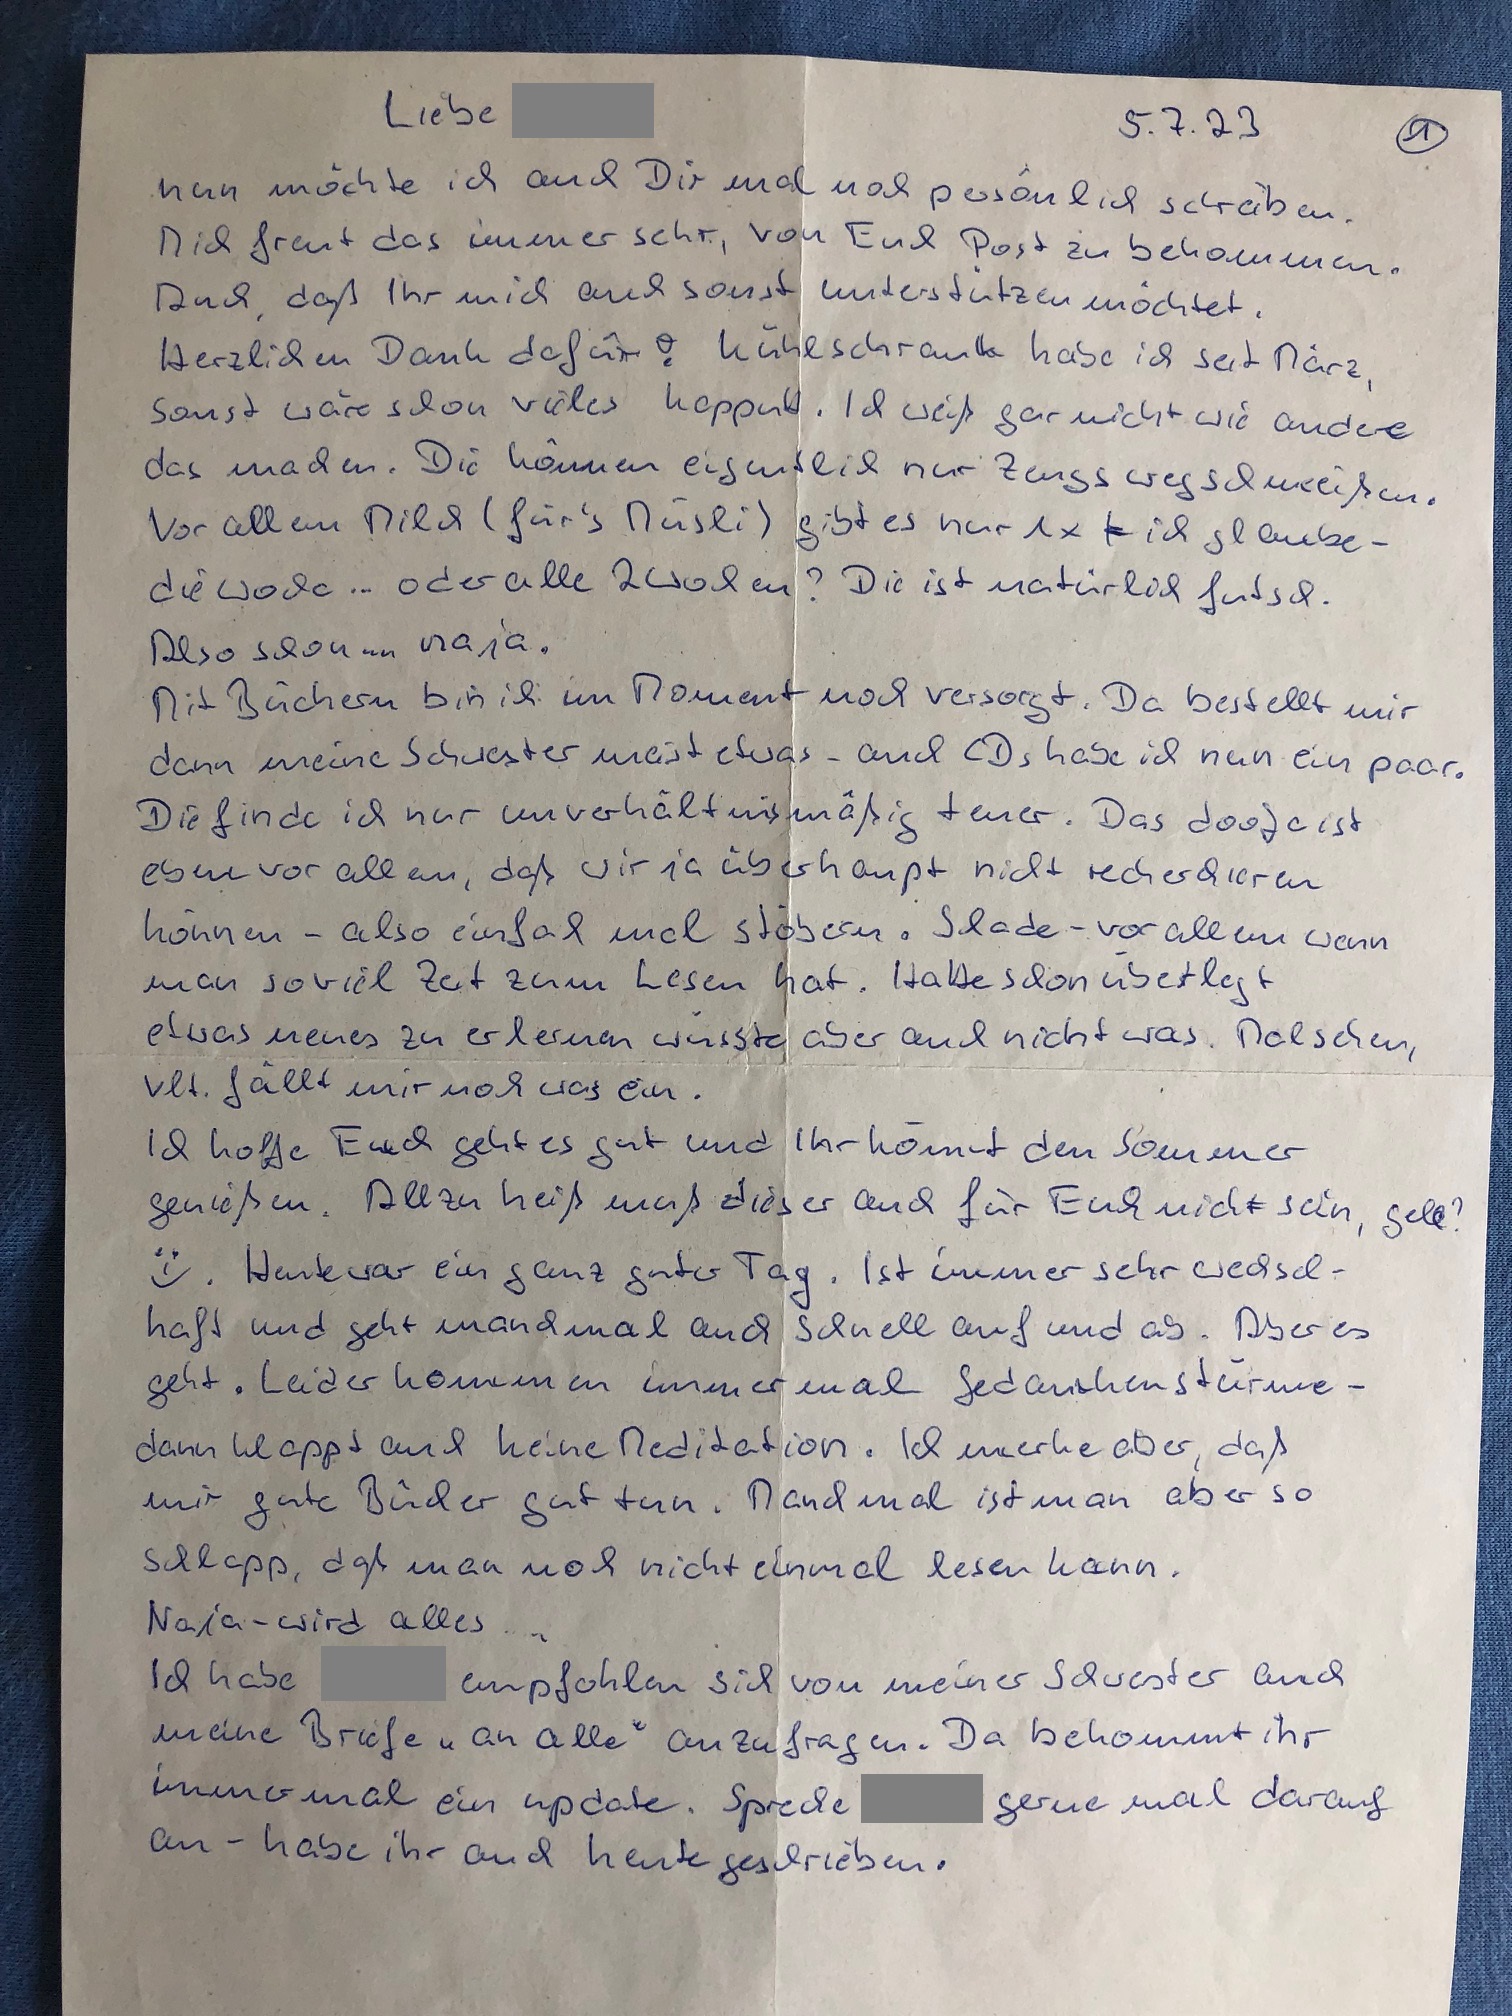 Liebe
5.7.23
1
nun möchte ich auch Dir mal noch persönlich schreiben.
Mich freut das immer sehr, von Euch Post zu bekommen.
Auch, daß Ihr mich auch sonst unterstützen möchtet.
Herzlichen Dank dafür! Kühlschrank habe ich seit März,
sonst wäre schon vieles kapput. Ich weiß gar nicht wie andere
das machen. Die können eigentlich nur Zeugs wegschmeißen.
Vor allem Milch (für's Müsli) gibt es nur 1x - ich glaube -
die Woche ... oder alle 2 Wochen? Die ist natürlich futsch.
Also schon ... naja.
Mit Büchern bin ich im Moment noch versorgt. Da bestellt mir
dann meine Schwester meist etwas - auch CDs habe ich nun ein paar.
Die finde ich nur unverhältnismäßig teuer. Das doofe ist
eben vor allem, daß wir ja überhaupt nicht recherchieren
können - also einfach mal stöbern. Schade - vor allem wenn
man soviel Zeit zum Lesen hat. Hatte schon überlegt
etwas neues zu erlernen wüsste aber auch nicht was. Mal sehen,
vlt. fällt mir noch was ein.
Ich hoffe Euch geht es gut und Ihr könnt den Sommer
genießen. Allzu heiß muß dieser auch für Euch nicht sein, gell?
☺. Heute war ein ganz guter Tag. Ist immer sehr wechsel-
haft und geht manchmal auch schnell auf und ab. Aber es
geht. Leider kommen immer mal Gedankenstürme -
dann klappt auch keine Meditation. Ich merke aber, daß
mir gute Bücher gut tun. Manchmal ist man aber so
schlapp, daß man noch nicht einmal lesen kann.
Naja - wird alles ...
Ich habe empfohlen sich von meiner Schwester auch
meine Briefe „an alle" anzufragen. Da bekommt ihr
immer mal ein update. Spreche gerne mal darauf
an - habe ihr auch heute geschrieben.